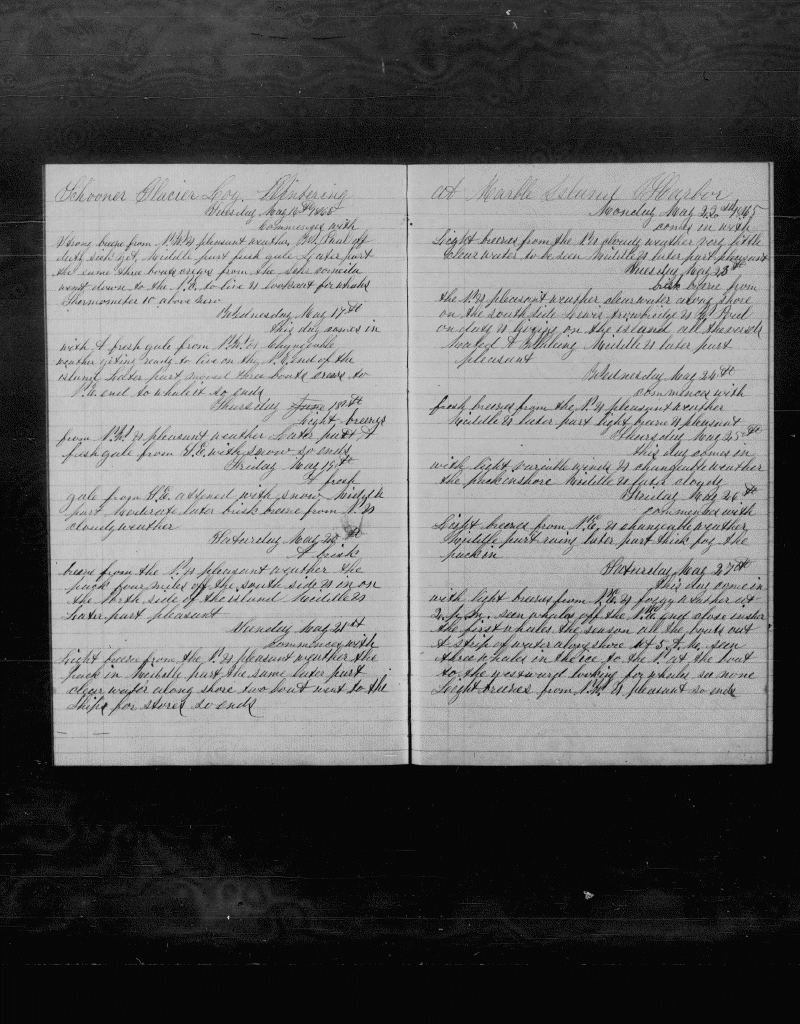 Schooner Glacier Log. Wintering
Tuesday May 16th 1865
Commences with
Strong breese from N.W. & pleasant weather
duty sick yet, Middle part fresh gale Later part
the same three boats crews from the
went down to the N.E. to live & lookout for whales
Thermometer 10 above zero
Wednesday May 17th
this day comes in
with A fresh gale from N.W. &
weather geting ready to live on the N.E. end of the
island Later part moved three boats crews to
N.E. end to whale it so ends
Thursday June 18th
Light breezes
from N.W. & pleasant weather Later part A
fresh gale from S.E. with snow so ends
Friday May 19th
A fresh
gale from S.E. attened with snow Middle
part Moderate later brisk breese from N. &
cloudy weather
Saturday May 20th
A brisk
breese from the N. & pleasant weather the
pack four miles off the south side & in on
the North side of the island Middle &
Later part pleasant
Sunday May 21st
Commences with
Light breese from the N. & pleasant weather the
pack in Middle part the same later part
clear water along shore two boat went to the
Ships for stores so ends
at Marble Island Harbor
Monday May 22nd 1865
comes in with
Light breeses from the N. & cloudy weather very little
clear water to be seen Middle & later part pleasant
Tuesday May 23th
brisk breese from
the N. & pleasant weather clear water along shore
on the south side
on & living on the island all the vessels
Middle & later part
pleasant
Wednesday May 24th
commences with
fresh breeses from the N. & pleasant weather
Middle & later part light breese & pleasant
Thursday May 25th
this day comes in
with light variable winds & changeable weather
the pack in shore Middle & later cloudy
Friday May 26th
commences with
Light breeses from N.E. & changeable weather
Middle part rainy later part thick fog the
pack in
Saturday May 27th
this day come in
with light breeses from N.E. & foggy weather at
2 P.M. seen whales off the N.E. end close inshore
the first whales the season all the boats out
A strip of water along shore At 5 P.M. seen
three whales in the ice to the N. at the boat
to the westward looking for whales see none
Light breeses from N.W. & pleasant so ends